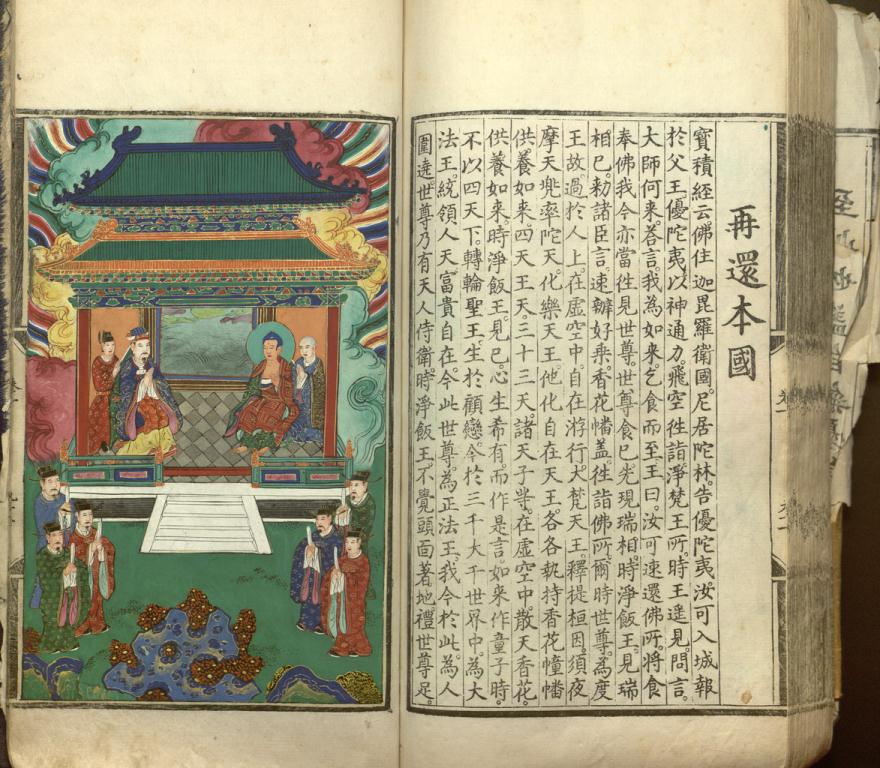 再還本國
寶積經云佛住迦毘羅衛國。尼居陀林。告優陀夷。汝可入城報
於父王。優陀夷以神通力。飛空徃詣淨梵王所。時王遙見問言。
大師何来。荅言。我為如来乞食而至。王曰。汝可速還佛所。將食
奉佛。我今亦當徃見世尊。世尊食已。先現瑞相。時淨飯王。見瑞
相已。勑諸臣言。速辦好乘。香花幡盖。徃詣佛所。爾時世尊。為度
王故。過於人上。在虛空中。自在游行。大梵天王。釋提桓因。須夜
摩天。兠率陀天。化樂天王。他化自在天王。各各執持香花幢幡
供養如来。四天王天。三十三天。諸天子等。在虛空中。散天香花。
供養如来。時淨飯王。見已。心生希有。而作是言。如来作童子時。
不以四天下。轉輪聖王。生於顧戀。今於三千大千世界中。為大
法王。統領人天。富貴自在。今此世尊。為正法王。我今於此。為人
圍遶。世尊乃有天人侍衛。時淨飯王。不覺頭面著地。禮世尊足。